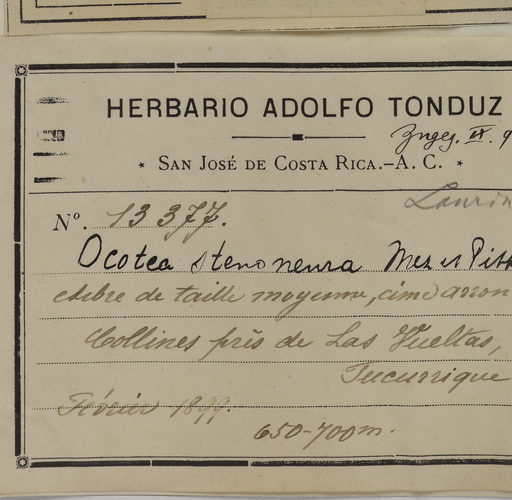 HERBARIO ADOLFO TONDUZ
Zngeg. IX. 9
* SAN JOSÉ DE COSTA RICA.-A. C. *
Laurin
Nº. 13377.
Ocotea stenoneura Mez et Pitt
Arbre de taille moyenne, cime arron
Collines près de Las Vueltas,
Tucurrique
Février 1899.
650-700m.